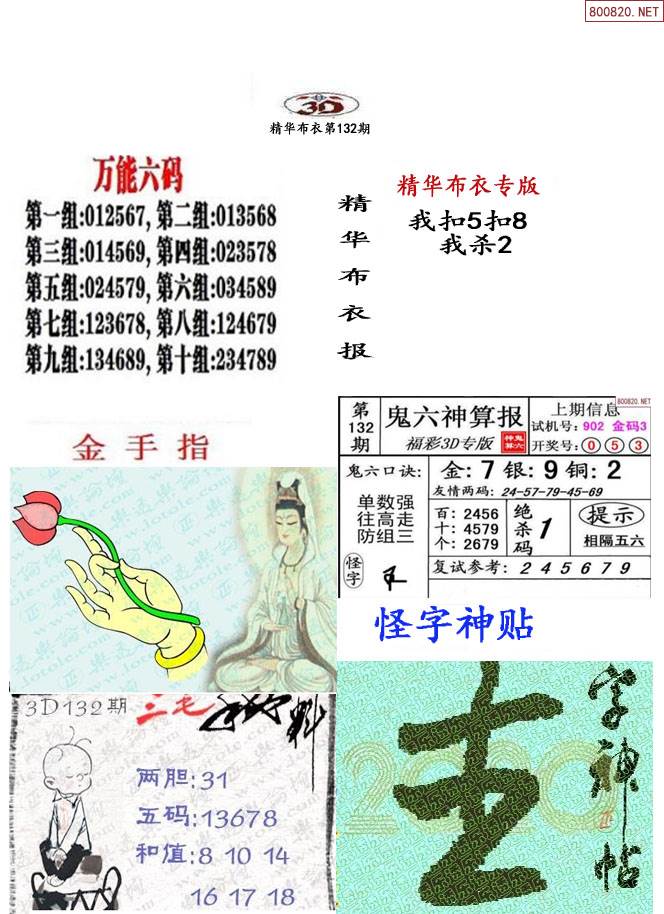 800820.NET
3D
精华布衣第132期
万能六码
第一组:012567,第二组:013568
第三组:014569,第四组:023578
第五组:024579,第六组:034589
第七组:123678,第八组:124679
第九组:134689,第十组:234789
精华布衣报
精华布衣专版
我扣5扣8
我杀2
金手指
第132期
鬼六神算报
福彩3D专版
神鬼算六
上期信息
800820.NET
试机号:902 金码3
开奖号:053
鬼六口诀:
单数强
往高走
防组三
怪字
金:7银:9铜:2
友情两码:24-57-79-45-69
百:2456
十:4579
个:2679
绝杀码
1
提示
相隔五六
复试参考:245679
怪字神贴
3D132期
三毛
两胆:31
五码:13678
和值:8 10 14
16 17 18
字神帖
2020